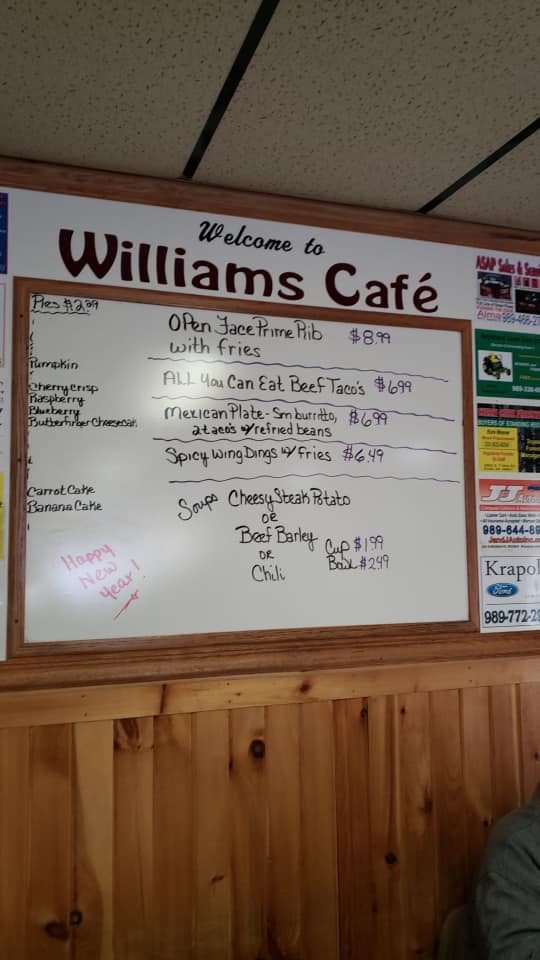 Welcome to
Williams Café
Pies $2.99
Pumpkin
Cherry Crisp
Raspberry
Blueberry
Butterfinger Cheesecak
Carrot Cake
Banana Cake
Happy
New
year!
Open Face Prime Rib $8.99
with fries
ALL You Can Eat Beef Taco's $6.99
Mexican Plate - Sm burrito, $6.99
2 tacos w/ refried beans
Spicy Wing Dings w/ Fries $6.49
Soups Cheesy Steak Potato
or
Beef Barley
or
Chili
Cup $1.99
Bowl $2.49
ASAP Sales & Ser
Alma
BUYERS OF STANDING
JJ Auto
989-644-
Krapo
Ford
989-772-2